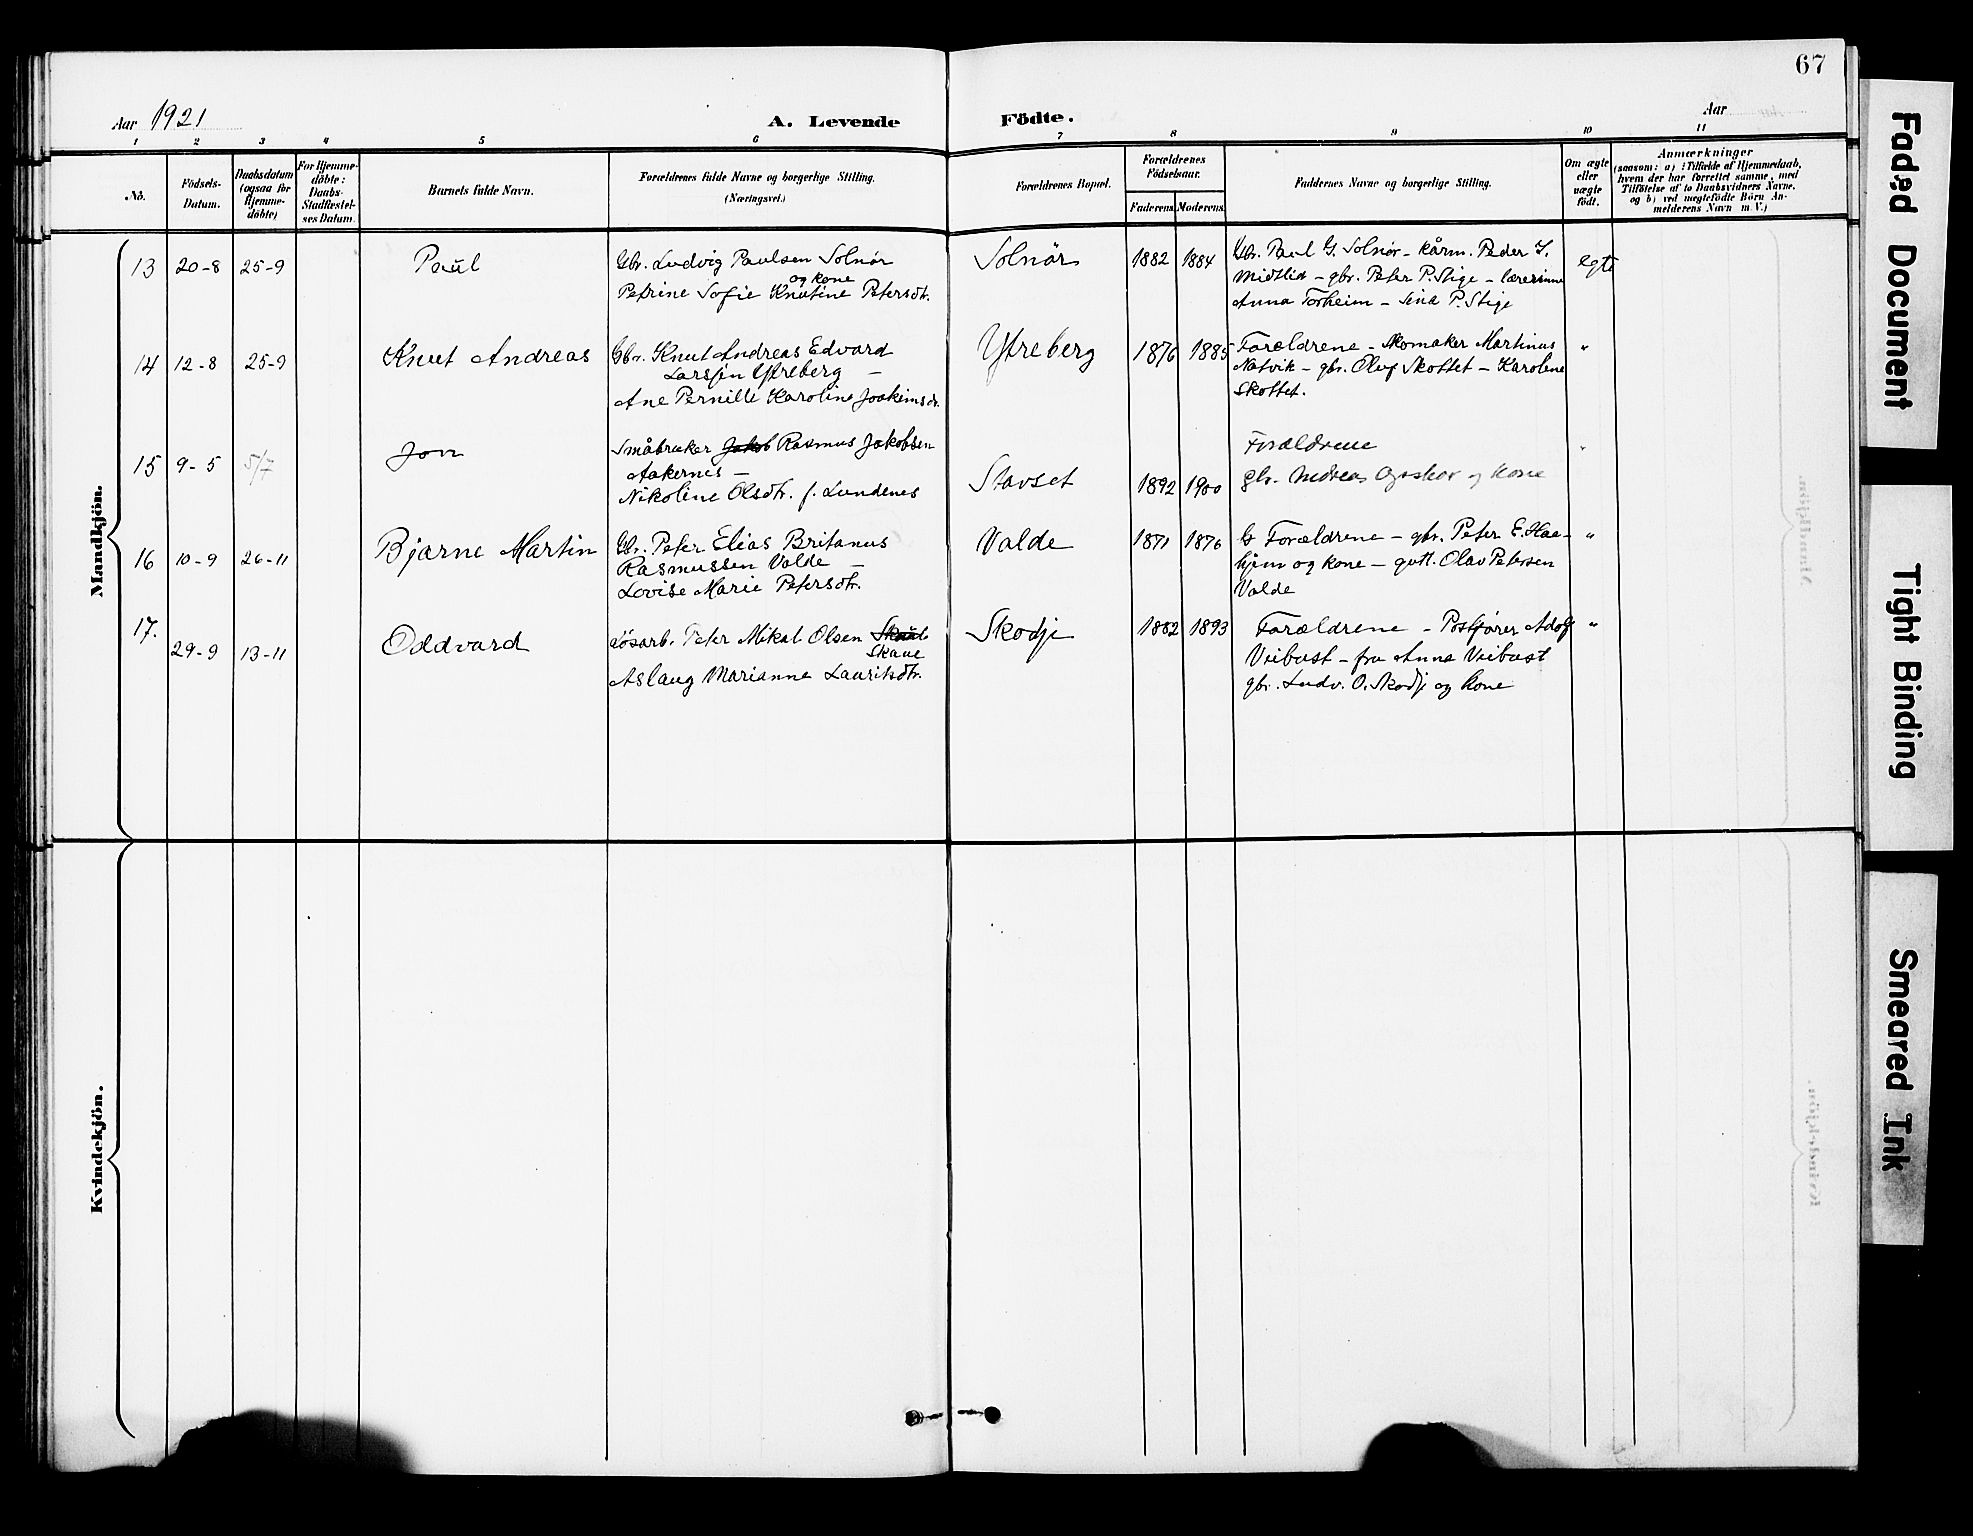 67
Aar 1921
A. Levende Födte.
Aar
1 2 3 4 5 6 7 8 9 10 11
No.
Födsels-
Datum.
Daabsdatum
(ogsaa for
Hjemme-
döbte)
For Hjemme-
döbte:
Daabs-
Stadfæstel-
ses Datum.
Barnets fulde Navn.
Forældrenes fulde Navne og borgerlige Stilling.
(Næringsvei.)
Forældrenes Bopæl.
Forældrenes
Födselsaar.
Faderens
Moderens
Faddernes Navne og borgerlige Stilling.
Om ægte
eller
uægte
födt.
Anmærkninger
(saasom: a) i Tilfælde af Hjemmedaab,
hvem der har forrettet samme, med
Tilföielse af to Daabsvidners Navne,
og b) ved uægtefödte Börn An-
melderens Navn m. V.)
Mandkjön.
13 20-8 25-9 Paul
Gbr. Ludvig Paulsen Solnör
og kone
Petrine Sofie Knutine Petersdtr.
Solnör 1882 1884
Gbr. Paul G. Solnør - kårm. Peder I.
Midtlid - gbr. Peter P. Stige - lærerinne
Anna Torheim - Sina P. Stige
egte
14 12-8 25-9 Knut Andreas
Gbr. Knut Andreas Edvard
Larsen Ytreberg -
Ane Pernille Karoline Joakimsdr.
Ytreberg 1876 1885
Forældrene - Skomaker Martinus
Natvik - gbr. Oluf Skottet - Karoline
Skottet.
"
15 9-5 5/7 Jon
Småbruker Jakob Rasmus Jakobsen
Aakernes -
Nikoline Olsdtr. f. Lundenes
Stavset 1892 1900
Forældrene
gbr. Andreas og kone
"
16 10-9 26-11 Bjarne Martin
Gbr. Peter Elias Britanus
Rasmussen Valde -
Lovise Marie Petersdtr.
Valde 1871 1876
G Forældrene - gbr. Peter E. Haa-
hjem og kone - gutt. Olav Petersen
Valde
"
17. 29-9 13-11 Oddvard
Løsarb. Peter Mikal Olsen
Skaue
Aslaug Marianne Lauritsdtr.
Skodje 1882 1893
Forældrene - Postfører Adolf
Viebust - fru Anna Viebust
gbr. Ludv. O. Skodje og kone
"
Kvindekjön.
Faded Document
Tight Binding
Smeared Ink